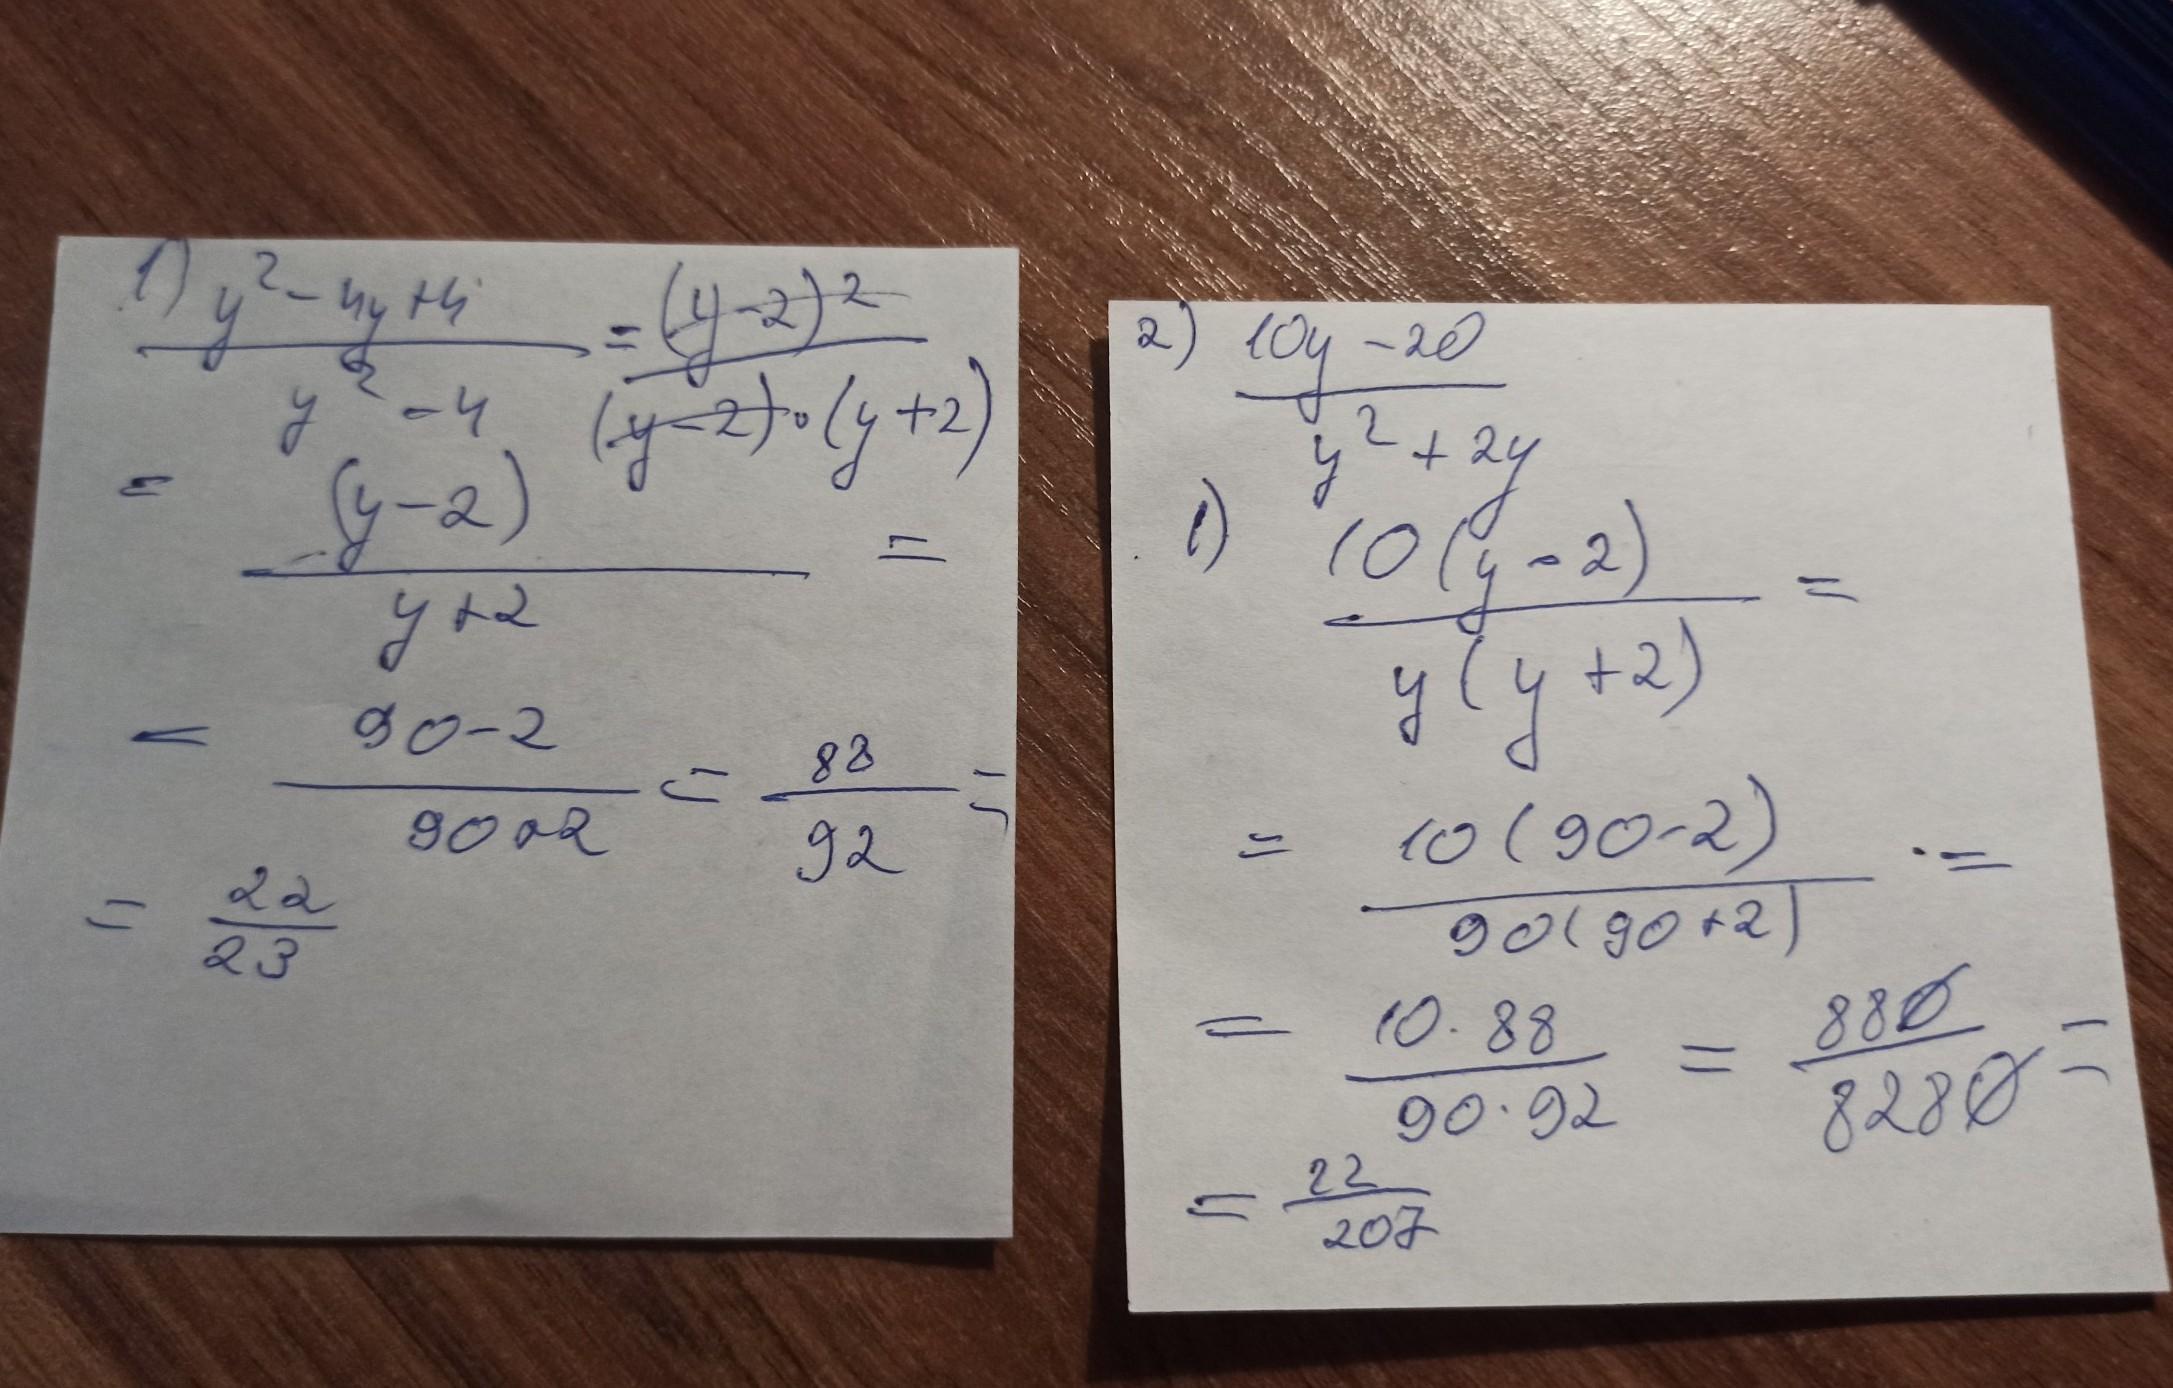 1) y² - 4y + 4 / y² - 4 = (y-2)² / (y-2)·(y+2)
= (y-2) / y+2 =
= 90-2 / 90+2 = 88 / 92 =
= 22 / 23
2) 10y - 20 / y² + 2y
1) 10(y-2) / y(y+2) =
= 10(90-2) / 90(90+2) =
= 10·88 / 90·92 = 880 / 8280 =
= 22 / 207